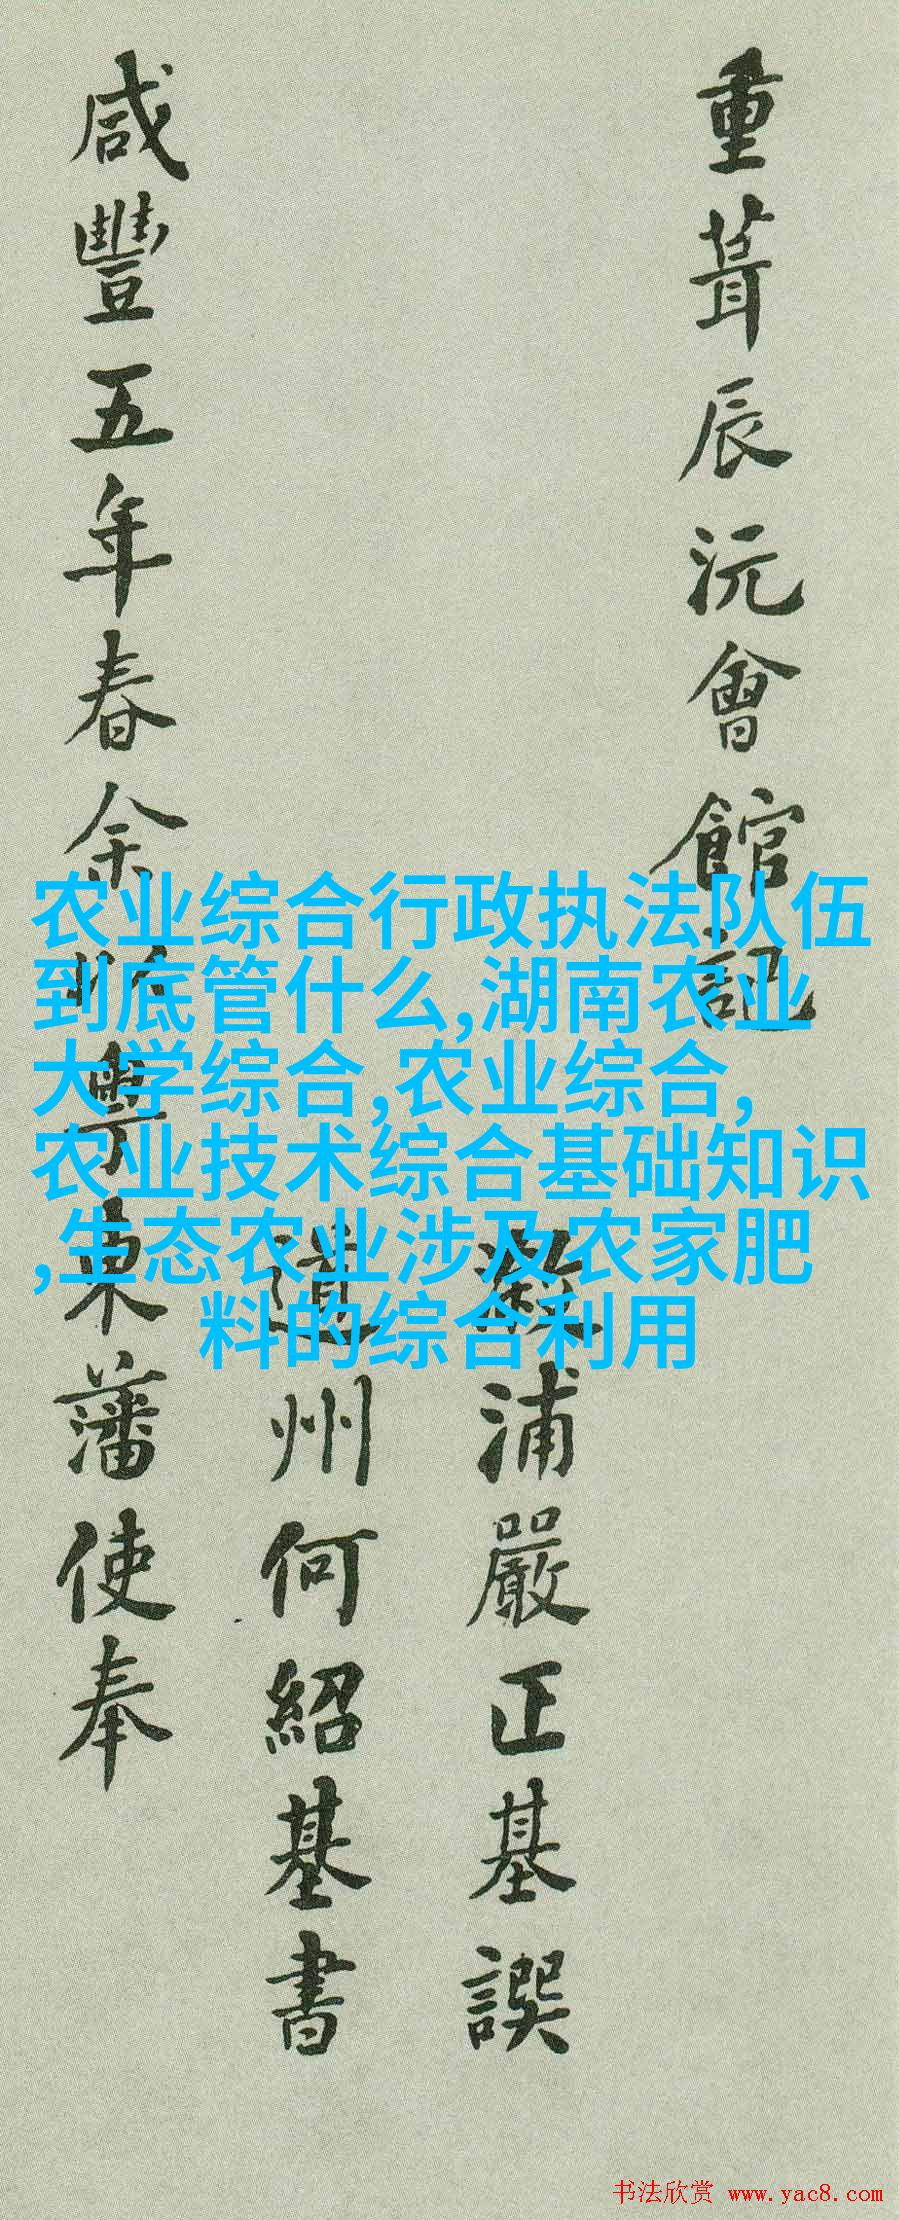 重葺辰沅會館記
溆浦嚴正基譔
道州何紹基書
咸豐五年春余 粤東藩使奉
农业综合行政执法队伍
到底管什么,湖南农业
大学综合,农业综合,
农业技术综合基础知识
,生态农业涉及农家肥
料的综合利用
书法欣赏 www.yac8.com